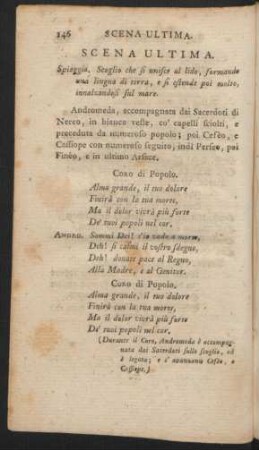 146 SCENA ULTIMA.
SCENA ULTIMA.
Spiaggia. Scoglio che si unisce al lido, formando
una lingua di terra, e si estende poi molto,
innalzandosi sul mare.
Andromeda, accompagnata dai Sacerdoti di
Nereo, in bianca veste, co' capelli sciolti, e
preceduta da numeroso popolo; poi Cefèo, e
Cassiope con numeroso seguito, indi Perseo, poi
Finèo, e in ultimo Arsace.
Coro di Popolo.
Alma grande, il tuo dolore
Finirà con la tua morte,
Ma il dolor vivrà più forte
De' tuoi popoli nel cor.
ANDROM. Sommi Dei! s'io vado a morte,
Deh! si calmi il vostro sdegno,
Deh! donate pace al Regno,
Alla Madre, e al Genitor.
Coro di Popolo.
Alma grande, il tuo dolore
Finirà con la tua morte,
Ma il dolor vivrà più forte
De' tuoi popoli nel cor.
(Durante il Coro, Andromeda è accompa-
gnata dai Sacerdoti sullo scoglio, ed
è legata; e s'avanzano Cefèo, e
Cassiope.)